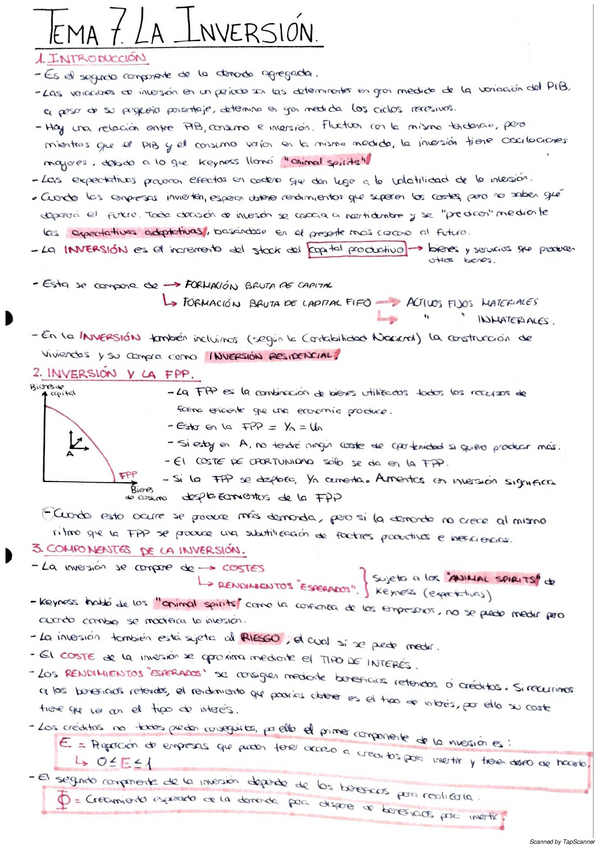 TEMA 7. LA INVERSIÓN.
1. INTRODUCCIÓN
- Es el segundo componente de la demanda agregada.
- Las variaciones de inversión en un período son las determinantes en gran medida de la variación del PIB,
a pesar de su pequeño porcentaje, determina en gran medida los ciclos recesivos.
- Hay una relación entre PIB, consumo e inversión. Fluctúan con la misma tendencia, pero
mientras que el PIB y el consumo varían en la misma medida, la inversión tiene oscilaciones
mayores, debido a lo que Keyness llamó "animal spirits"
- Las expectativas provocan efectos en cadena que dan lugar a la volatilidad de la inversión.
- Cuando las empresas invierten, esperan obtener rendimientos que superen los costes, pero no saben qué
deparará el futuro. Toda decisión de inversión se asocia a incertidumbre y se "predicen" mediante
las expectativas adaptativas, basándose en el presente más cercano al futuro.
- La INVERSIÓN es el incremento del stock del capital productivo → bienes y servicios que producen
otros bienes.
- Esta se compone de → FORMACIÓN BRUTA DE CAPITAL
↳ FORMACIÓN BRUTA DE CAPITAL FIJO → ACTIVOS FIJOS MATERIALES
↳ " " INMATERIALES.
- En la INVERSIÓN también incluimos (según la Contabilidad Nacional) la construcción de
viviendas y su compra como INVERSIÓN RESIDENCIAL.
2. INVERSIÓN Y LA FPP.
Bienes de
capital
A
FPP
Bienes
de consumo
- La FPP es la combinación de bienes utilizados todos los recursos de
forma eficiente que una economía produce.
- Esto en la FPP = Yn = Un
- Si estoy en A, no tendré ningún coste de oportunidad si quiero producir más.
- El COSTE DE OPORTUNIDAD sólo se da en la FPP.
- Si la FPP se desplaza, Yn aumenta. Aumentos en inversión significa
desplazamientos de la FPP
- Cuando esto ocurre se produce más demanda, pero si la demanda no crece al mismo
ritmo que la FPP se produce una subutilización de factores productivos e ineficiencias.
3. COMPONENTES DE LA INVERSIÓN.
- La inversión se compone de → COSTES
↳ RENDIMIENTOS "ESPERADOS".
Sujeta a los "ANIMAL SPIRITS" de
Keyness (expectativas)
- Keyness habló de los "animal spirits" como la confianza de los empresarios, no se puede medir pero
cuando cambia se modifica la inversión.
- La inversión también está sujeta al RIESGO, el cual sí se puede medir.
- El COSTE de la inversión se aproxima mediante el TIPO DE INTERÉS.
- Los RENDIMIENTOS "ESPERADOS" se consiguen mediante beneficios retenidos o créditos. Si recurrimos
a los beneficios retenidos, el rendimiento que podrías obtener es el tipo de interés, por ello su coste
tiene que ver con el tipo de interés.
- Los créditos no todos pueden conseguirlos, por ello el primer componente de la inversión es:
E = Proporción de empresas que pueden tener acceso a créditos para invertir y tienen deseo de hacerlo.
↳ 0 ≤ E ≤ 1
- El segundo componente de la inversión depende de los beneficios para realizarla.
Φ = Crecimiento esperado de la demanda para disponer de beneficios para invertir.
Scanned by TapScanner